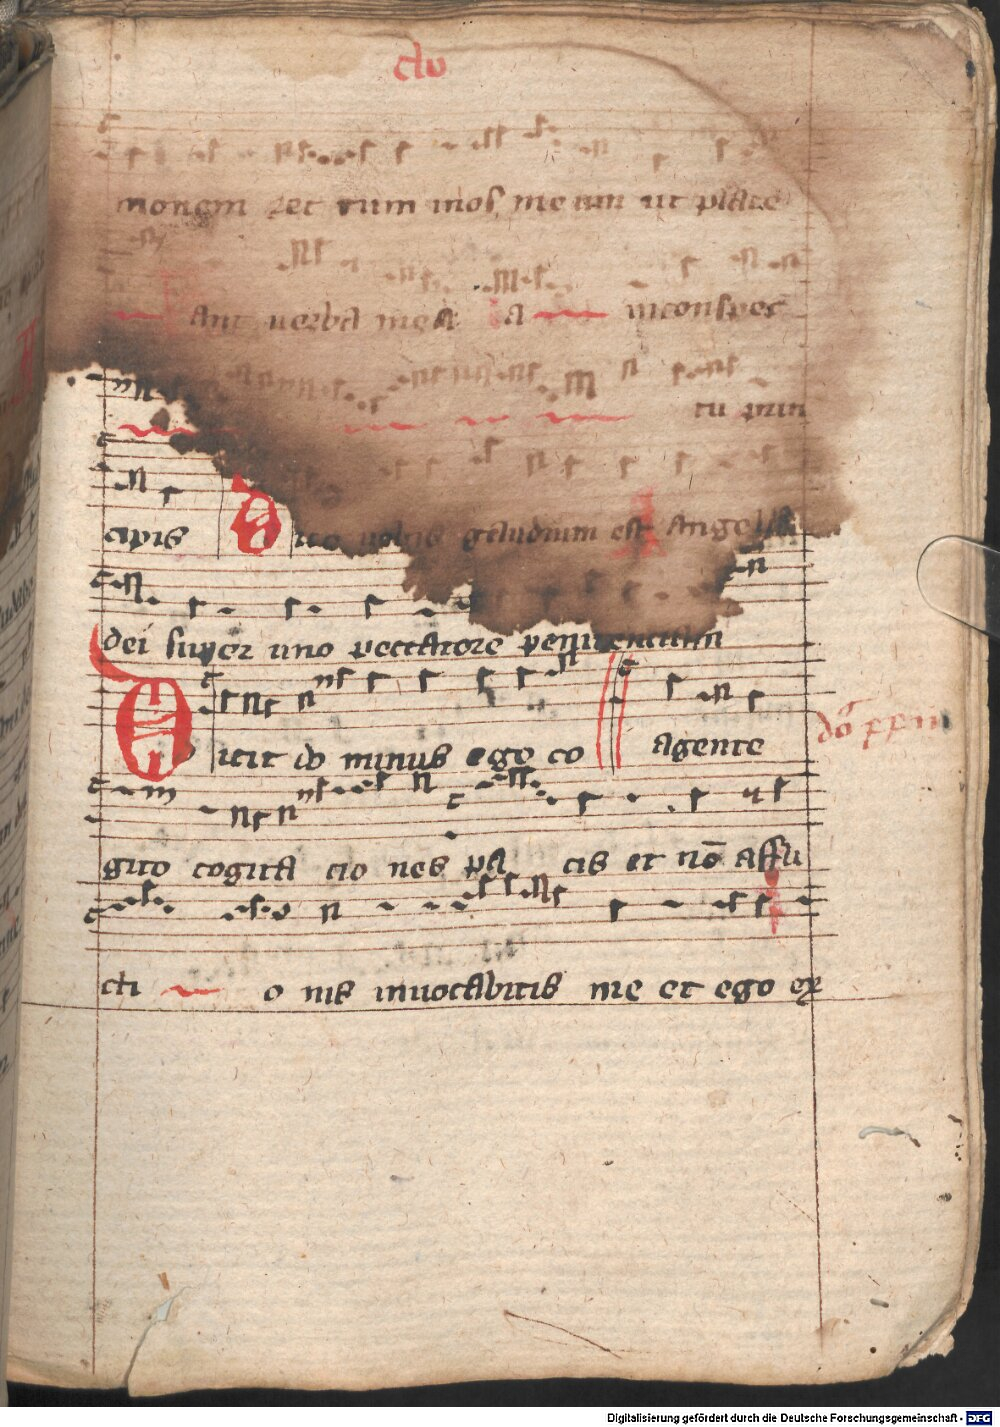 clv
monem et cum mos me um ut place
ant uerba mea A inconspec
tu prin
cipis Dico uobis gaudium est Angelis
dei super uno peccatore penitentiam
Dicit do minus ego co agente
gito cogita cio nes pa cis et nō affli
cti o nis inuocabitis me et ego ex
Digitalisierung gefördert durch die Deutsche Forschungsgemeinschaft - DFG